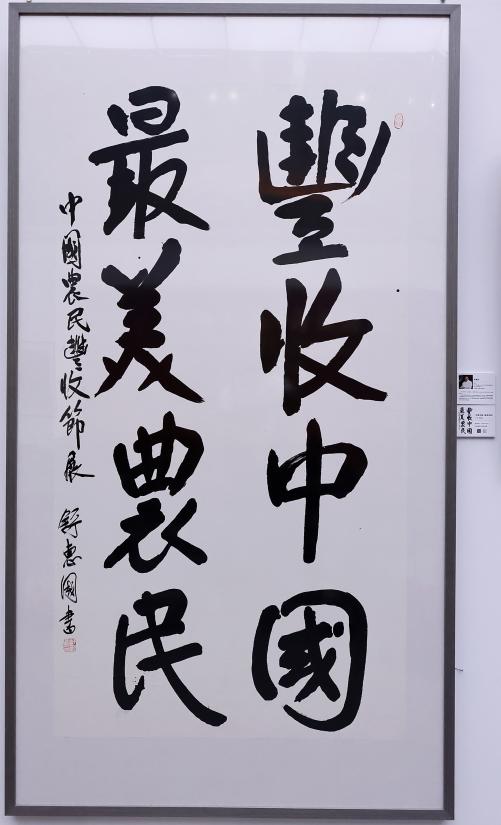 豐收中國
最美農民
中國農民豐收節展 舒惠國書